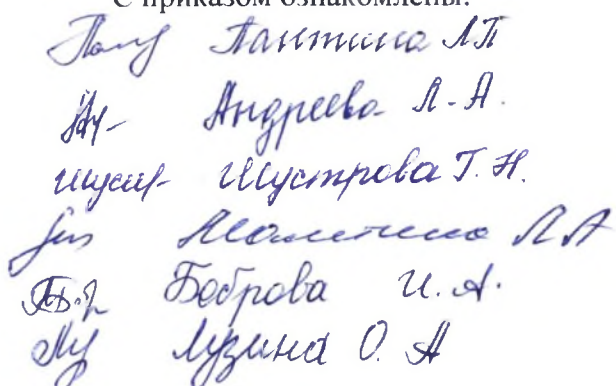 С приказом ознакомлены:
Пантина Л П
Андреева Л. А.
Шустрова Т. Н.
Л А
Боброва И. А.
Лузина О. А